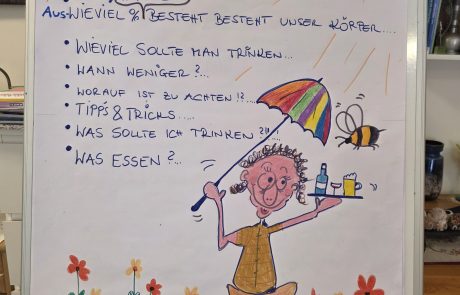 Aus-WIEVIEL % BESTEHT BESTEHT UNSER KÖRPER....
• WIEVIEL SOLLTE MAN TRINKEN...
• WANN WENIGER?...
• WORAUF IST ZU ACHTEN!?...
• TIPP'S & TRICKS.....
• WAS SOLLTE ICH TRINKEN?!!...
• WAS ESSEN?...